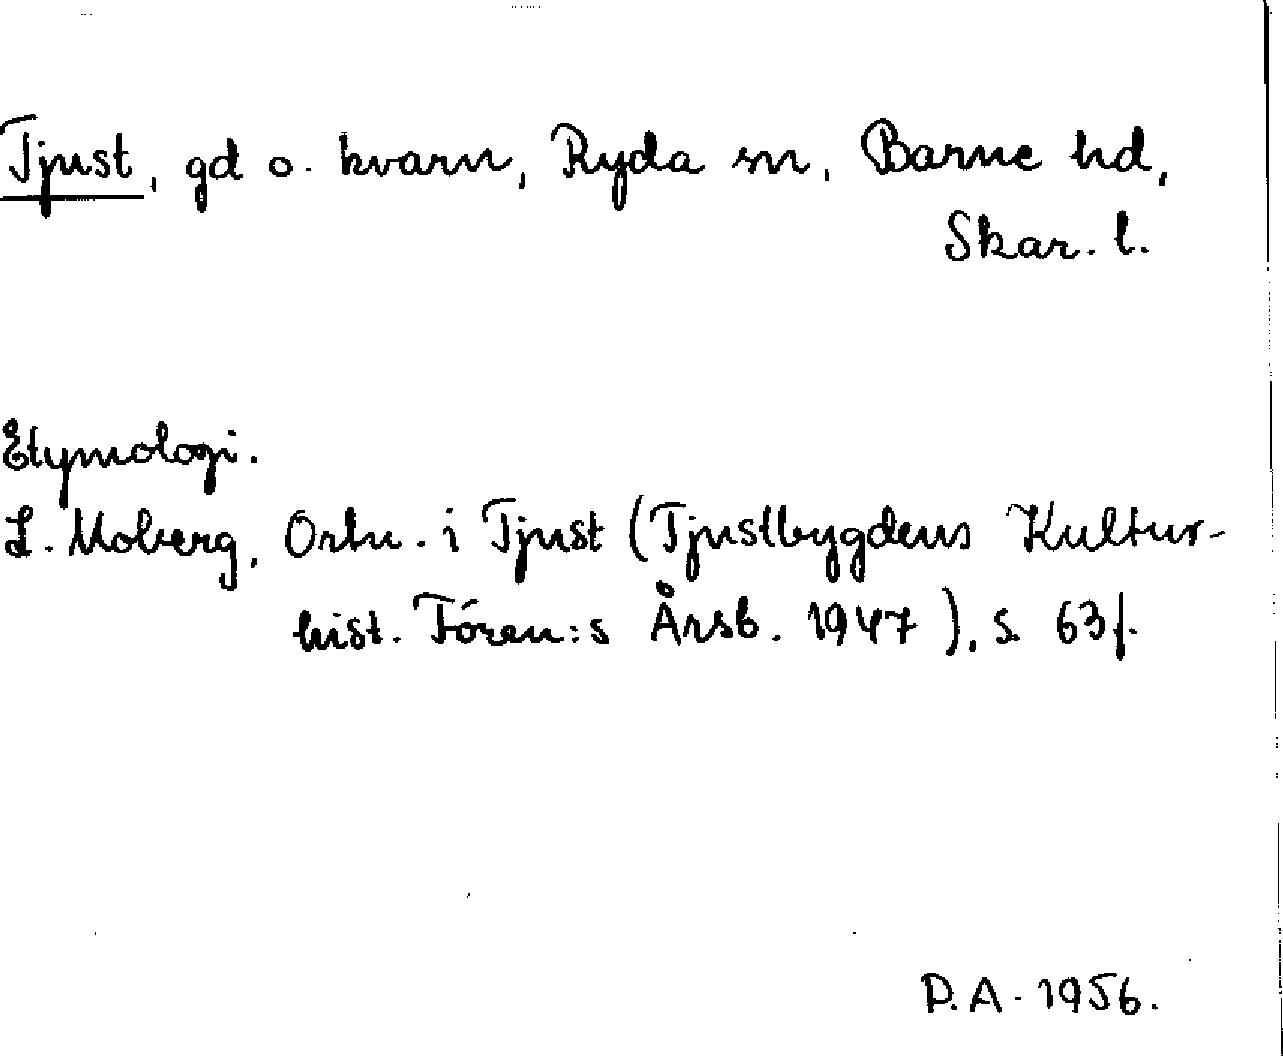 Tjust, gd o. kvarn, Ryda sn, Barne hd,
Skar. l.
Etymologi.
L. Moberg, Ortn. i Tjust (Tjustbygdens Kultur-
hist. Fören:s Årsb. 1947), s. 63f.
D.A. 1956.